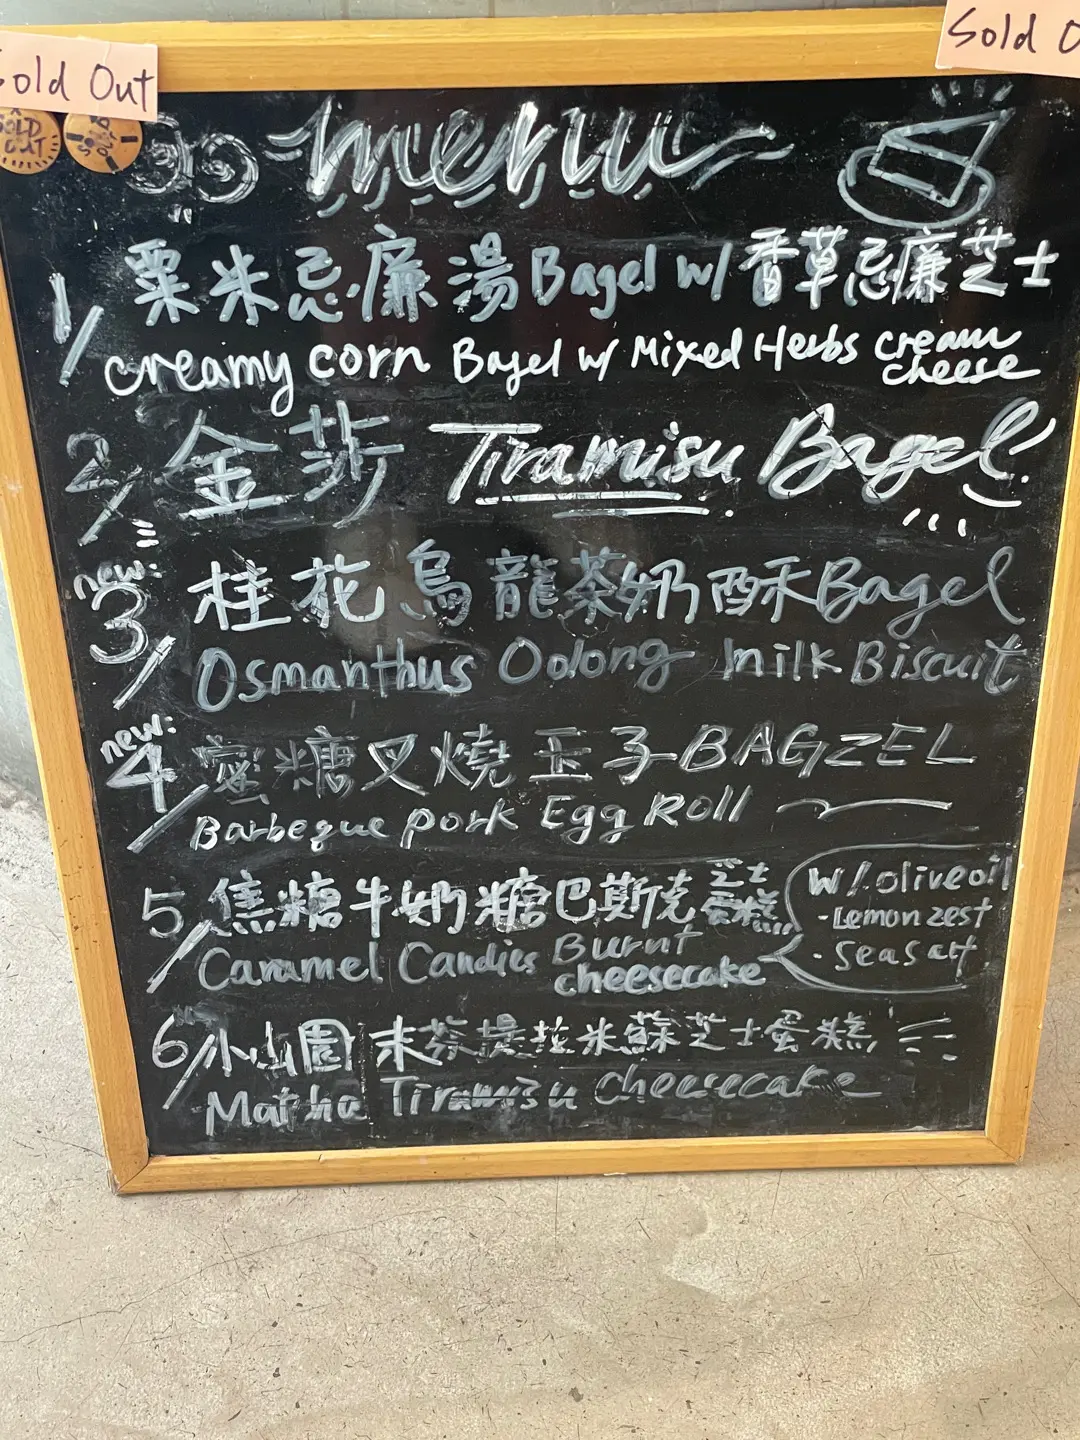 Sold Out
Sold O
SOLD OUT
SOLD OUT
menu
1/ 粟米忌廉湯Bagel w/ 香草忌廉芝士
creamy corn Bagel w/ Mixed Herbs cream cheese
2/ 金莎 Tiramisu Bagel
new:
3/ 桂花烏龍茶奶酥Bagel
Osmanthus Oolong milk Biscuit
new:
4/ 蜜糖叉燒玉子BAGZEL
Barbeque pork Egg Roll
5/ 焦糖牛奶糖巴斯克芝士蛋糕
Caramel Candies Burnt cheesecake
w/ olive oil
· Lemon zest
· Sea salt
6/ 小山園 末茶提拉米蘇芝士蛋糕
Matcha Tiramisu cheesecake